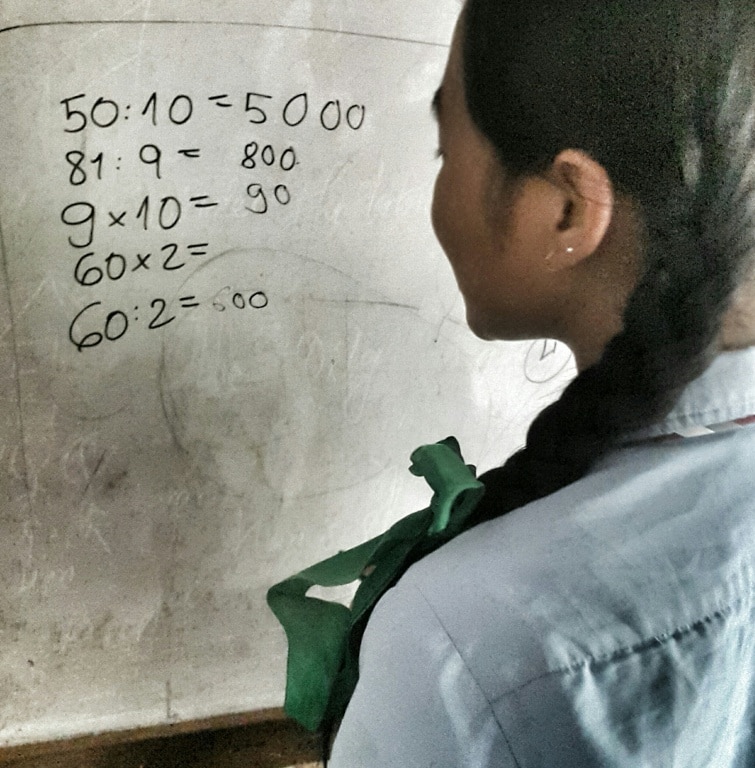 50:10=5000
81:9= 800
9×10= 90
60×2=
60:2=600